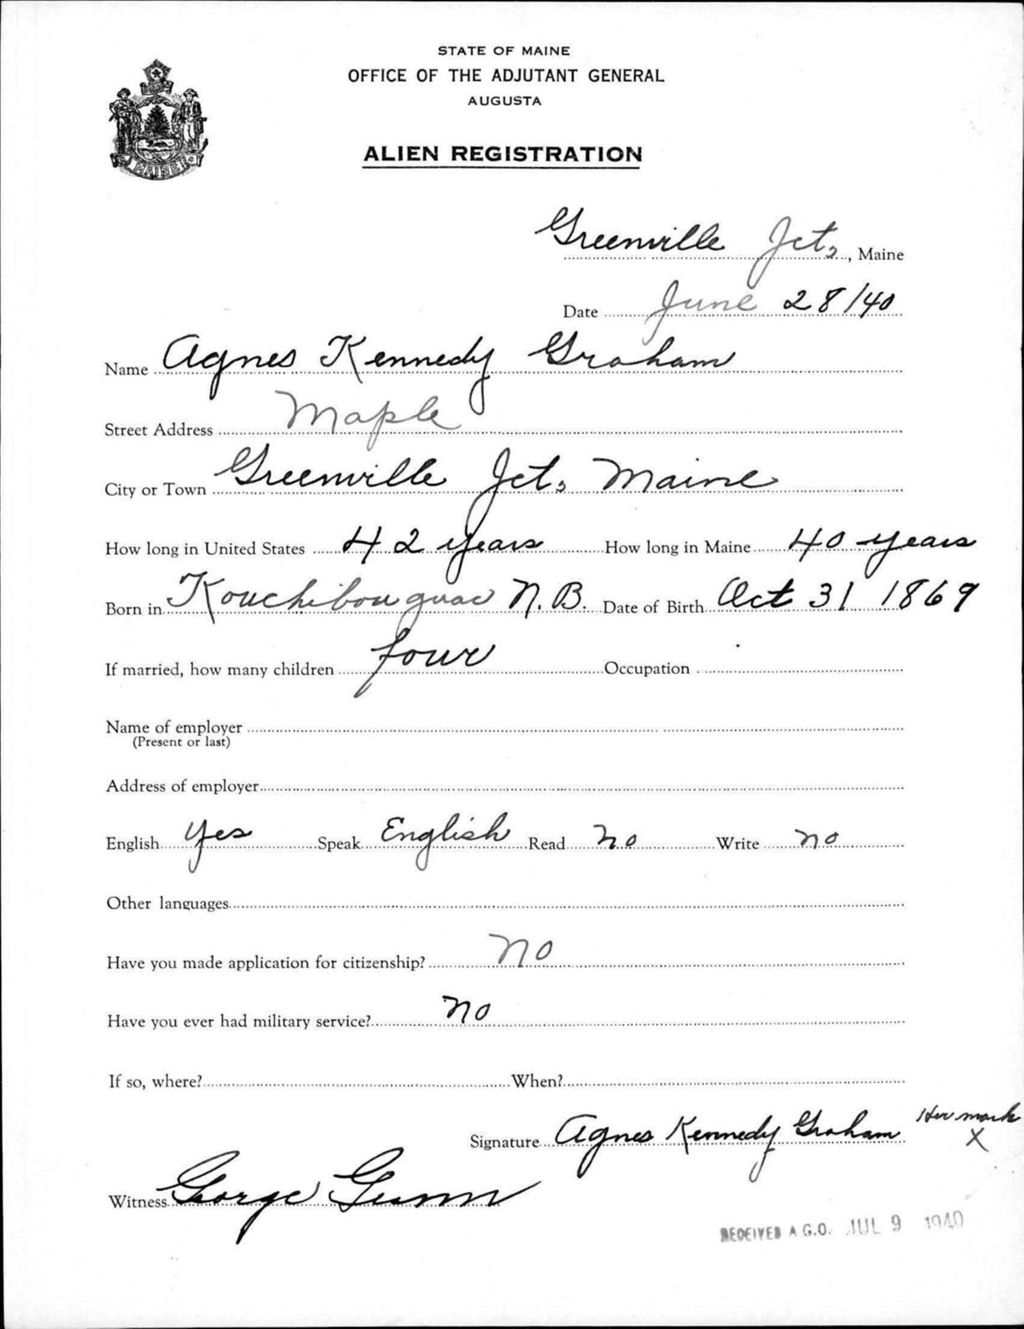 STATE OF MAINE
OFFICE OF THE ADJUTANT GENERAL
AUGUSTA
ALIEN REGISTRATION
MAINE
Greenville Jct., Maine
Date June 28/40
Name Agnes Kennedy Graham
Street Address Maple
City or Town Greenville Jct., Maine
How long in United States 42 years How long in Maine 40 years
Born in Kouchibouguac N.B. Date of Birth Oct 31 1869
If married, how many children four Occupation
Name of employer
(Present or last)
Address of employer
English Yes Speak English Read no Write no
Other languages
Have you made application for citizenship? no
Have you ever had military service? no
If so, where? When?
Signature Agnes Kennedy Graham Her mark
X
Witness George Gunn
RECEIVED A.G.O. JUL 9 1940